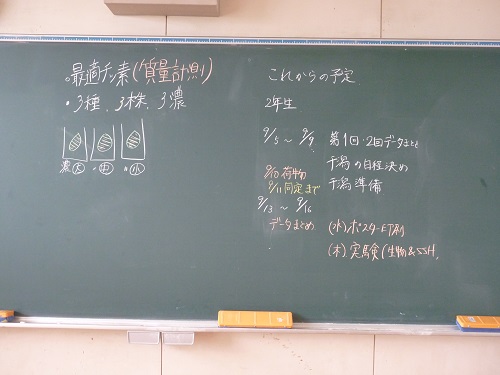 。最適チッ素(質量計測)
・3種、3株、3濃
濃大・中・小
これからの予定
2年生
9/5 ~ 9/9 第1回・2回データまとめ
干潟の日程決め
9/10 荷物 干潟準備
9/11 同定まで
9/13 ~ 9/16
データまとめ (水)ポスター印刷
(木)実験(生物&SSH)